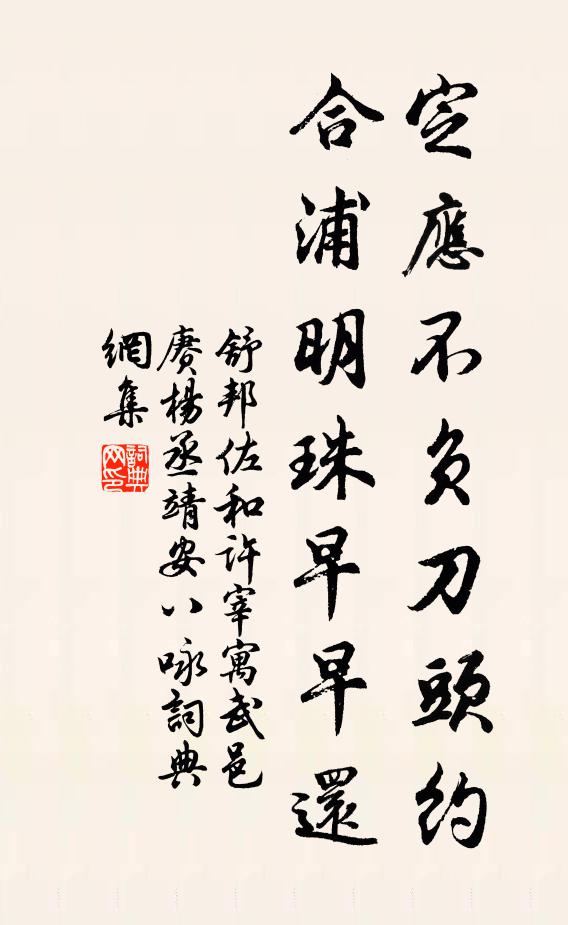 定應不負刀頭約
合浦明珠早早還
舒邦佐和許宰寓武邑
賡楊丞靖安八咏詞典
網集
詞典網印